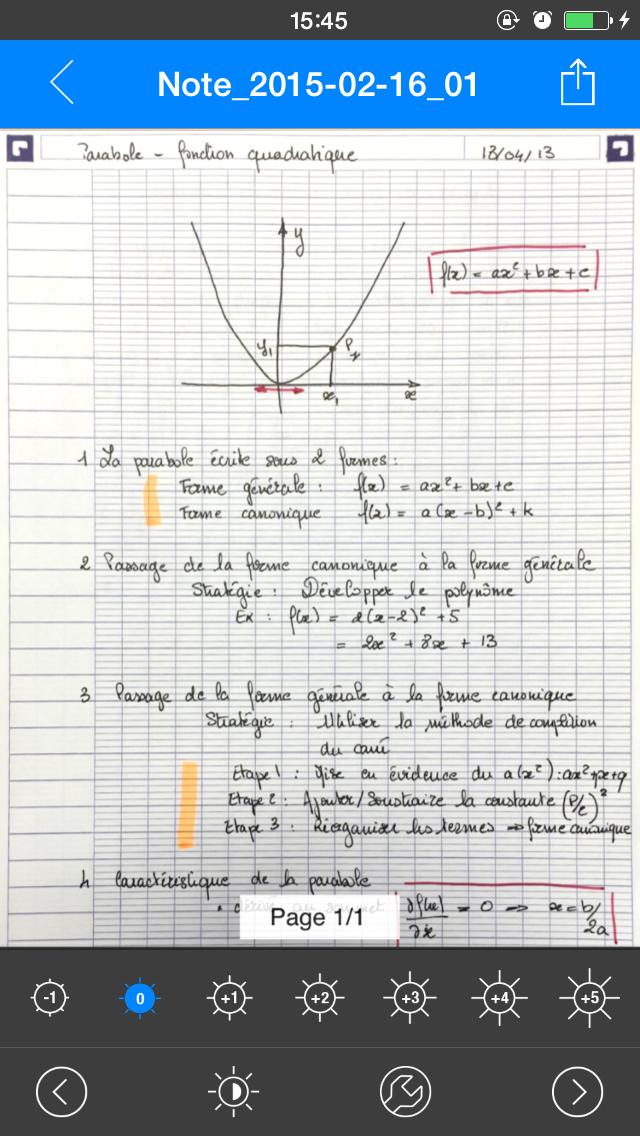 15:45
Note_2015-02-16_01
Parabole - fonction quadratique 18/04/13
y
f(x) = ax² + bx + c
y₁
P₁
x₁ x
1 La parabole écrite sous 2 formes :
Forme générale : f(x) = ax² + bx + c
Forme canonique f(x) = a(x - b)² + k
2 Passage de la forme canonique à la forme générale
Stratégie : Développer le polynôme
Ex : f(x) = 2(x-2)² + 5
= 2x² + 8x + 13
3 Passage de la forme générale à la forme canonique
Stratégie : Utiliser la méthode de complétion
du carré
Etape 1 : Mise en évidence du a(x²) : ax²+px+q
Etape 2 : Ajouter/Soustraire la constante (P/2)²
Etape 3 : Réorganiser les termes ⇒ forme canonique
4 Caractéristique de la parabole
∂f(x)/∂x = 0 ⇒ x = b/2a
Page 1/1
-1 0 +1 +2 +3 +4 +5